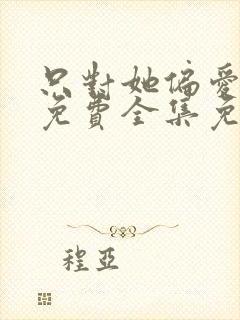 只對她偏愛
免費全集免
程亞